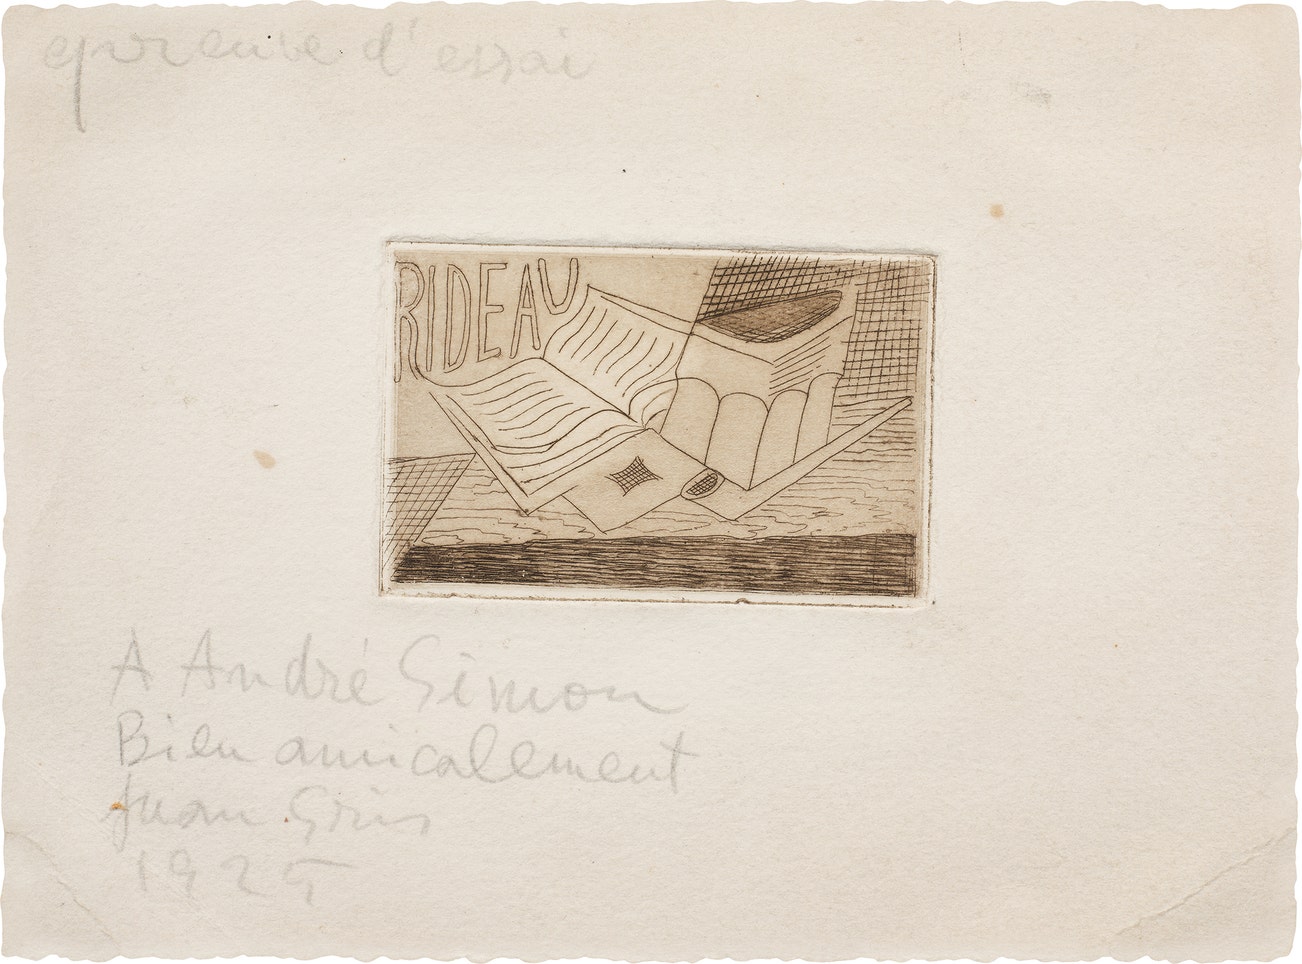 epreuve d'essai
RIDEAU
A André Simon
Bien amicalement
Juan Gris
1925